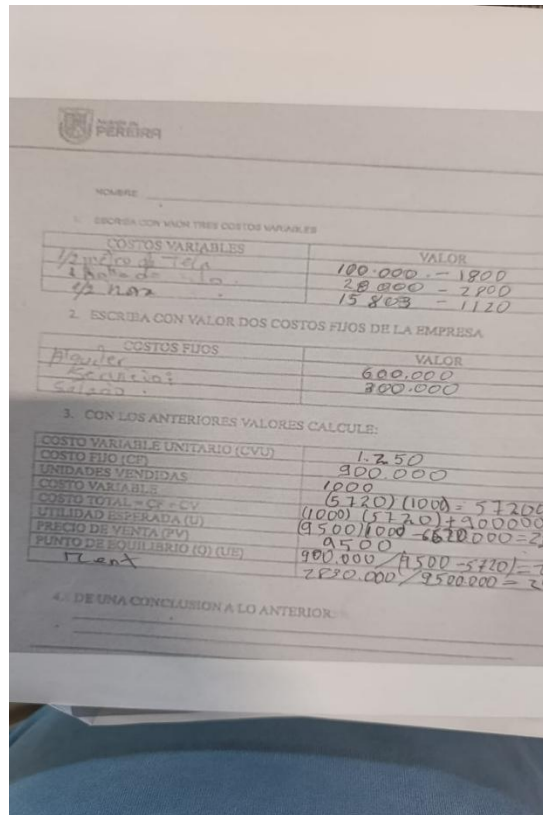 ALCALDÍA DE
PEREIRA
NOMBRE
1. ESCRIBA CON VALOR TRES COSTOS VARIABLES
COSTOS VARIABLES VALOR
1/2 metro de Tela 100.000.- 1800
28000 - 2800
1/2 15803 - 1120
2. ESCRIBA CON VALOR DOS COSTOS FIJOS DE LA EMPRESA
COSTOS FIJOS VALOR
Alquiler 600.000
Servicios 300.000
Salario.
3. CON LOS ANTERIORES VALORES CALCULE:
COSTO VARIABLE UNITARIO (CVU) 1.250
COSTO FIJO (CF) 900.000
UNIDADES VENDIDAS 1000
COSTO VARIABLE (5720) (1000) = 57200
COSTO TOTAL = CF + CV (1000) (5720) + 900000
UTILIDAD ESPERADA (U) (9500)1000 - 6620.000 = 2
PRECIO DE VENTA (PV) 9500
PUNTO DE EQUILIBRIO (Q) (UE) 900.000 / (9500 - 5720) =
Rent 2890.000 / 9500.000 = 2
4. DE UNA CONCLUSION A LO ANTERIOR: